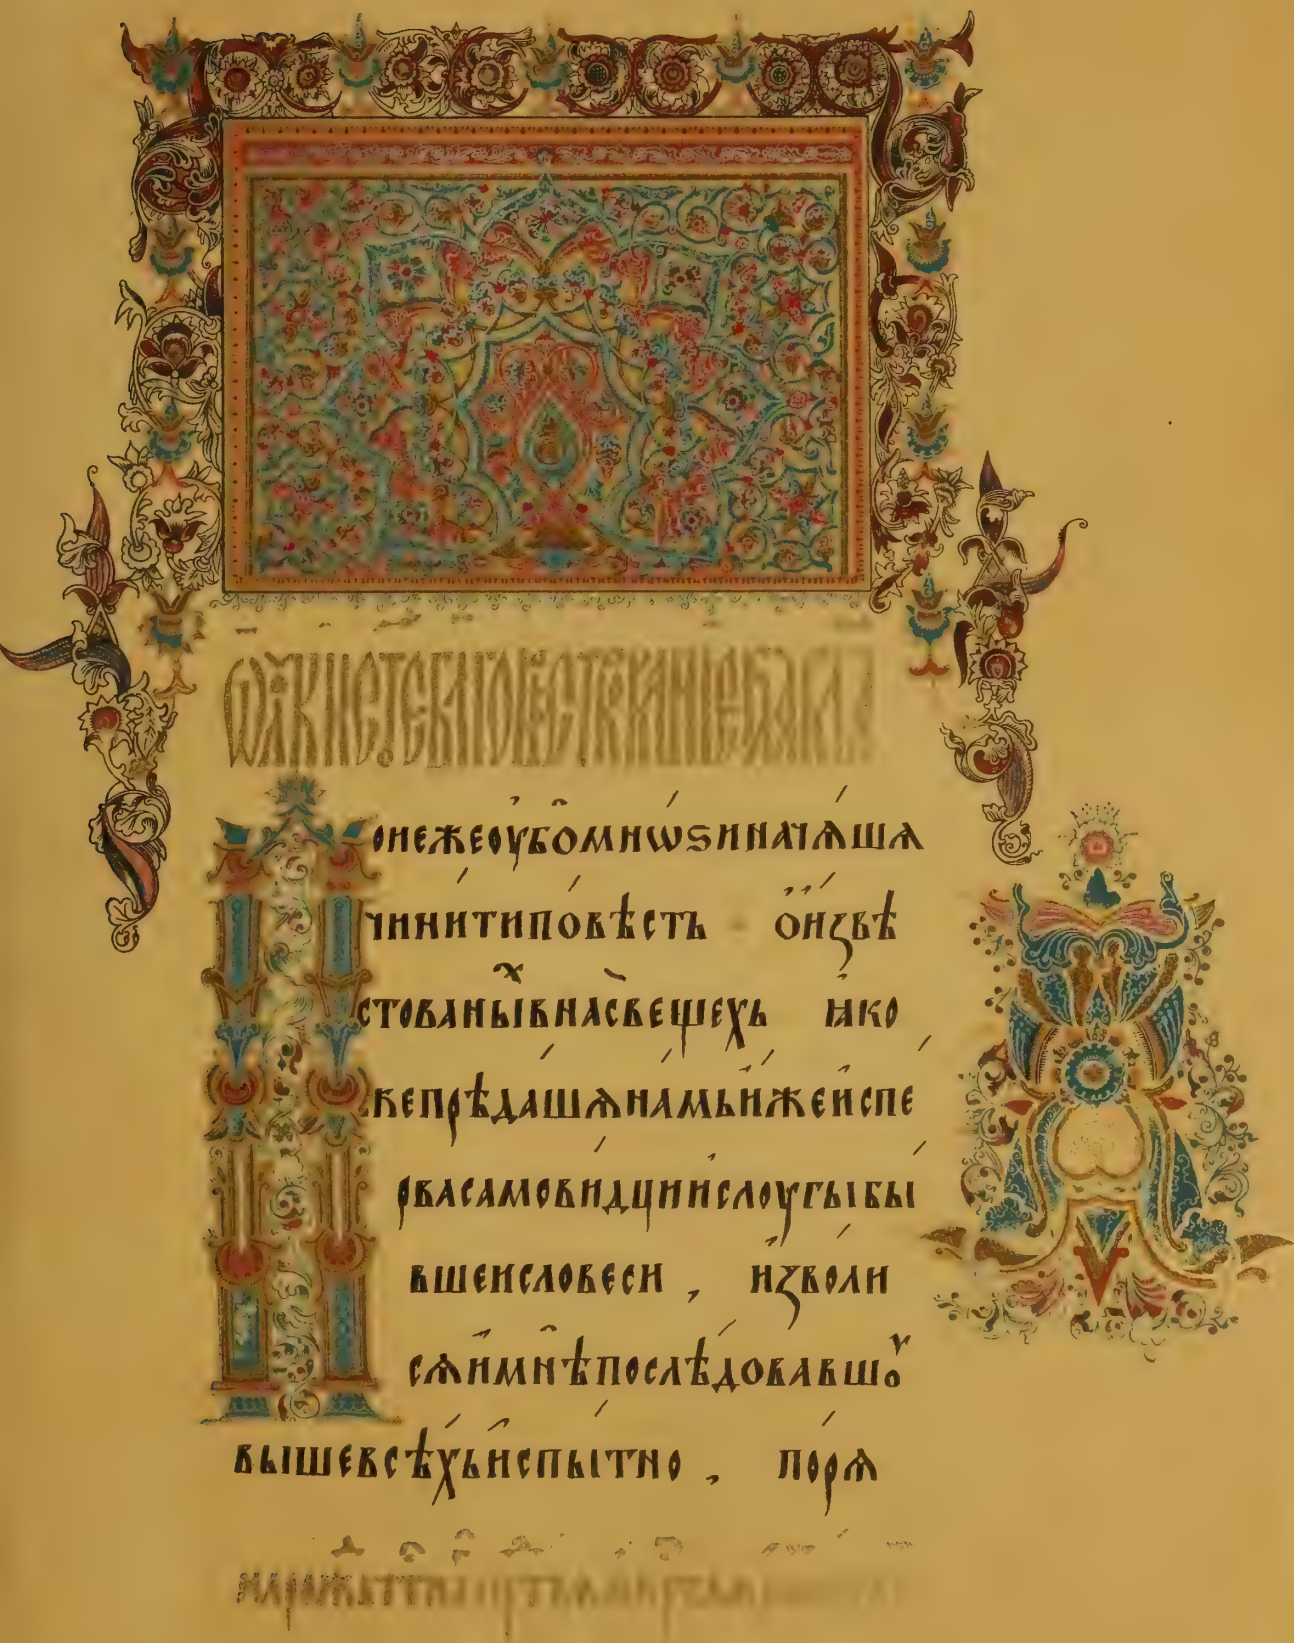 ѿ лꙋкы ст҃ое бл҃говѣствованїе
Понежеоубомноѕиначѧшѧ
чинитиповѣсть ѻ҆извѣ
стованныⷯвнасвещехь ꙗко
жепрѣдашѧнамьижеиспе
рвасамовидциислоугыбы
вшеисловеси , изволи
сѧимнѣпослѣдовавшоу
вышевсѣхьиспытно , порѧ